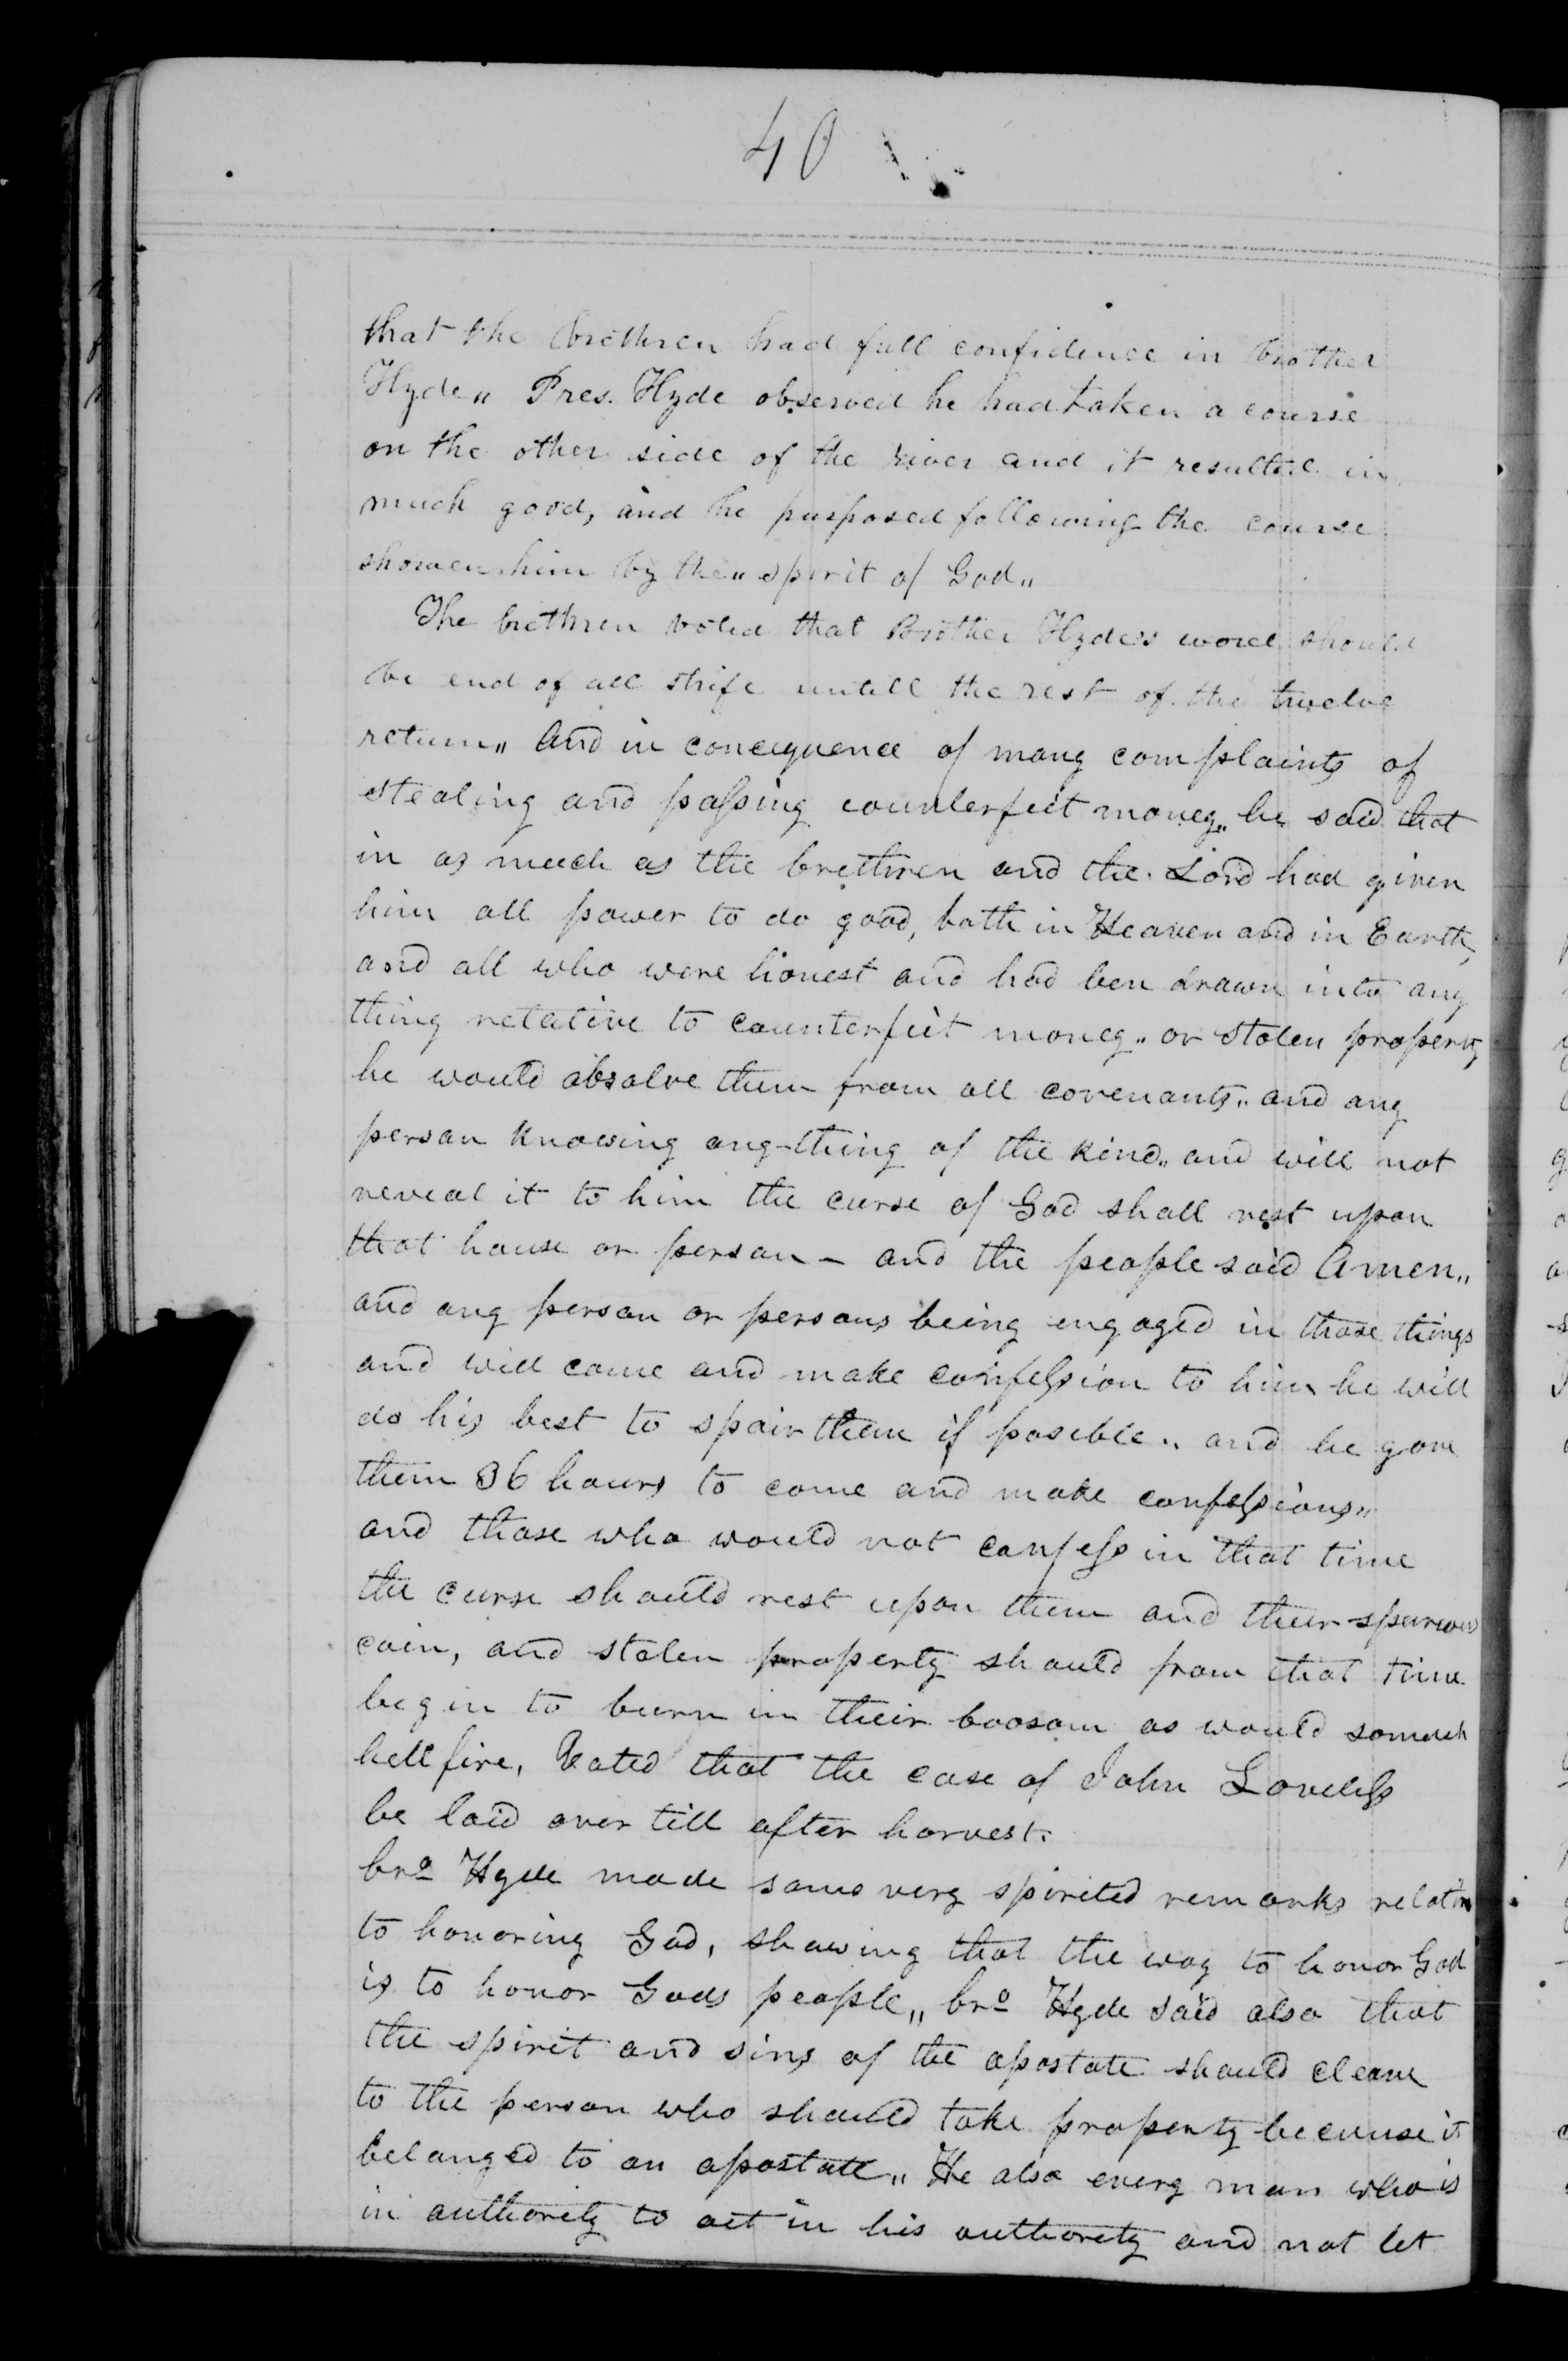 40
that the brethren had full confidence in brother
Hyde" Pres. Hyde observed he had taken a course
on the other side of the river and it resulted in
much good, and he purposed following the course
showen him by the "spirit of God"
The brethren voted that Brother Hyde's word should
be end of all strife untill the rest of the twelve
return" And in concequence of many complaints of
stealing and passing counterfeit money" he said that
in as much as the brethren and the Lord had given
him all power to do good, both in Heaven and in Earth,
and all who were honest and had ben drawn into any
thing relative to counterfeit money" or stolen property
he would absolve them from all covenants" and any
person knowing any-thing of the kind" and will not
reveal it to him the curse of God shall rest upon
that house or person - and the people said Amen"
and any person or persons being engaged in those things
and will come and make confession to him he will
do his best to spair them if posible" and he gave
them 36 hours to come and make confessions"
and those who would not confess in that time
the curse should rest upon them and their spurious
coin, and stolen property should from that time
begin to burn in their boosom as would somuch
hell fire, Voted that the case of John Loveless
be laid over till after harvest.
bro Hyde made some very spirited remarks relative
to honoring God, showing that the way to honor God
is to honor Gods people" bro Hyde said also that
the spirit and sins of the apostate should cleave
to the person who should take property because it
belonged to an apostate" He also every man who is
in authority to act in his authority and not let